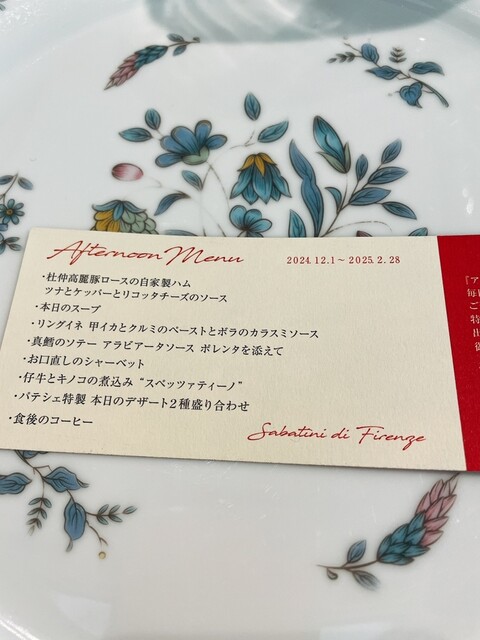 Afternoon Menu
2024.12.1～2025.2.28
・杜仲高麗豚ロースの自家製ハム
ツナとケッパーとリコッタチーズのソース
・本日のスープ
・リングイネ 甲イカとクルミのペーストとボラのカラスミソース
・真鱈のソテー アラビアータソース ポレンタを添えて
・お口直しのシャーベット
・仔牛とキノコの煮込み “スペッツァティーノ”
・パテシェ特製 本日のデザート2種盛り合わせ
・食後のコーヒー
Sabatini di Firenze
『ア
毎
ご
特
出